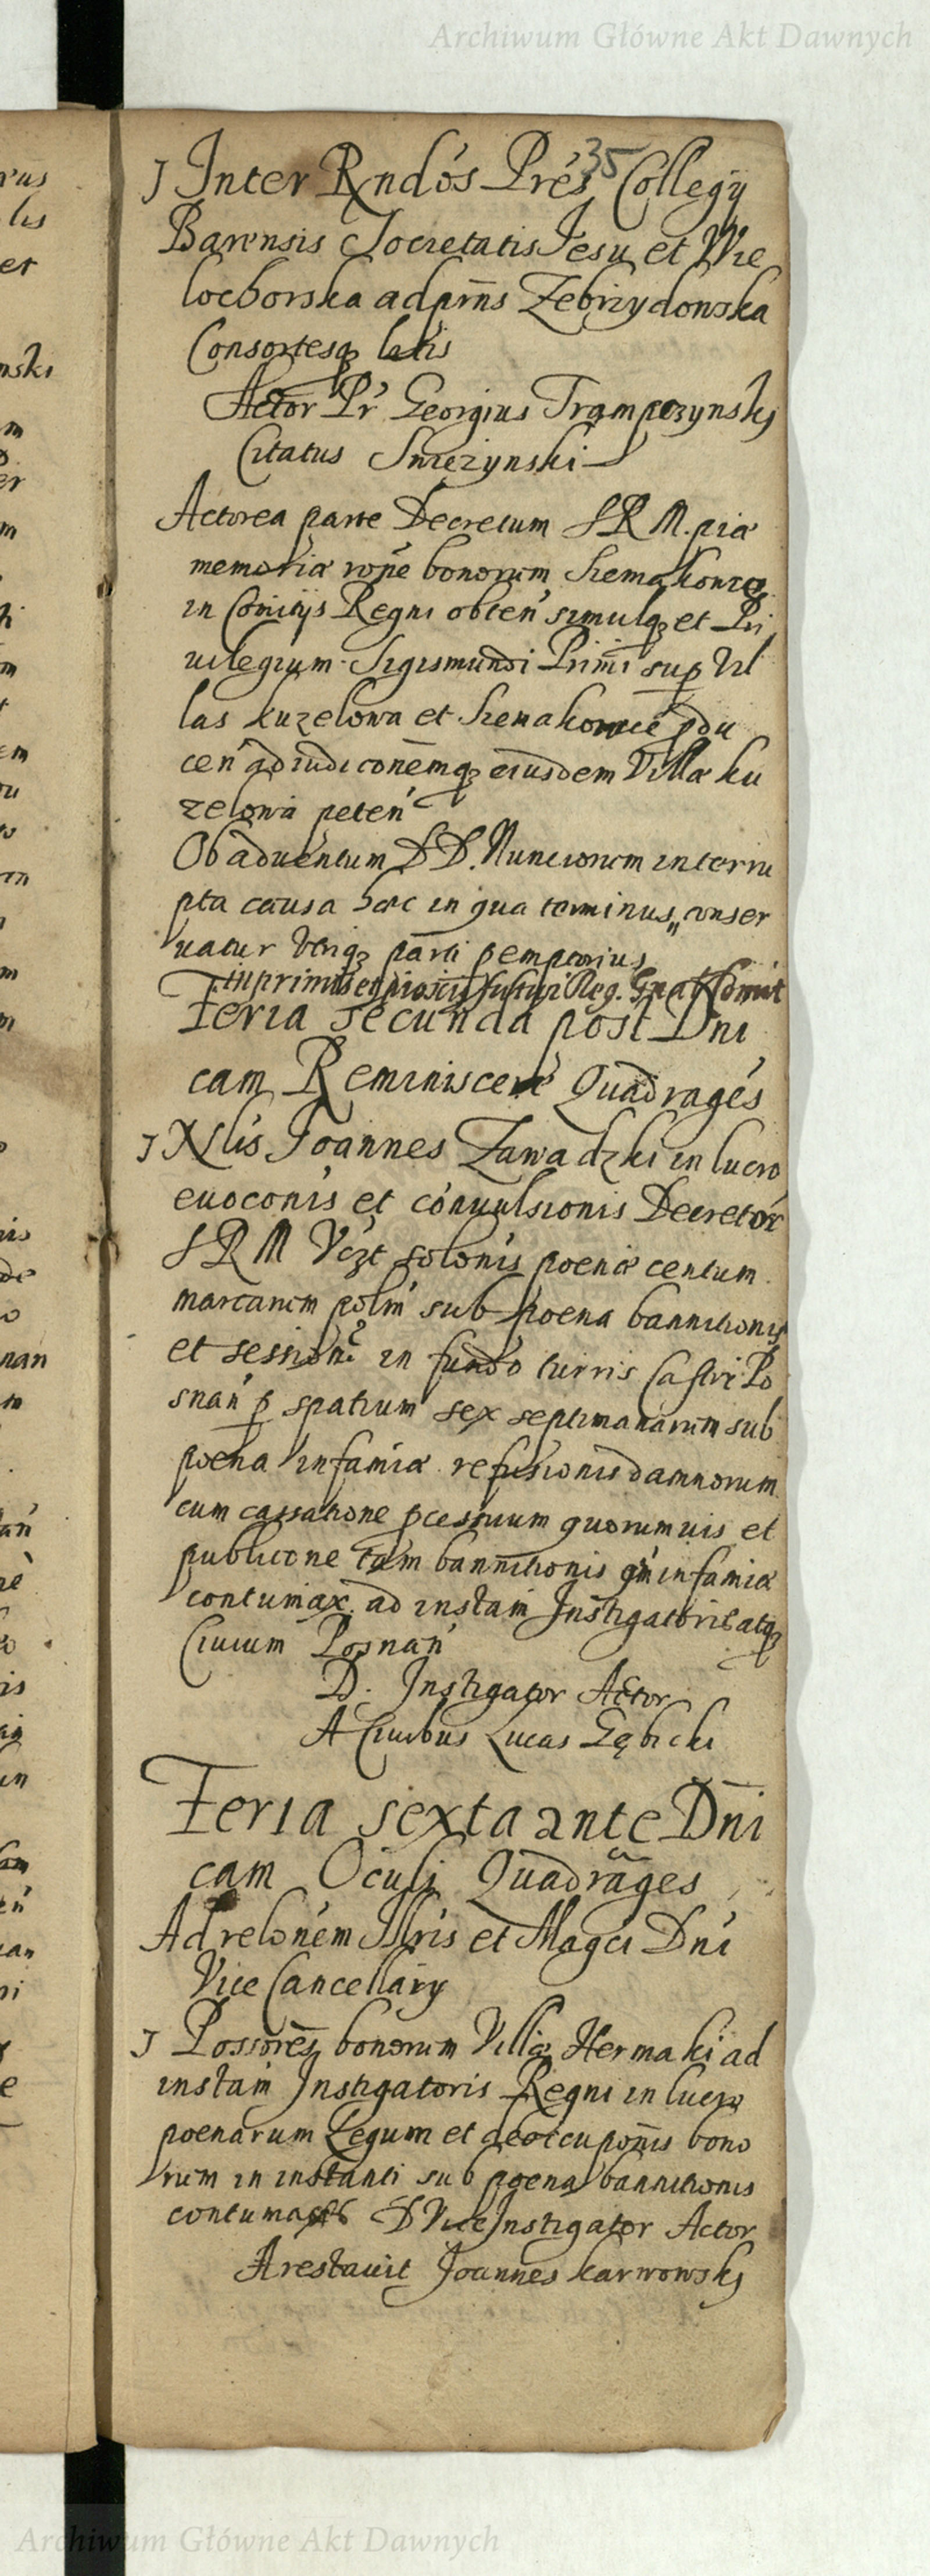 Archiwum Główne Akt Dawnych
35
J Inter Rndos Pres Collegij
Barensis Societatis Jesu et Wie
loborska ad prns Zebrzydowska
Consortesq
Actor Pr Georgius Trampczynskj
Citatus
Actorea parte Decretum S R M. piæ
memoriæ rone bonorum
in Comitijs Regni obten simulq et Pri
uilegium Sigismundi Primi sup Vil
las kuzelowa et pdu
cen adiudiconemq eiusdem Villæ ku
zelowa peten
Ob aduentum D D. Nunciorum interru
pta causa hæc in qua terminus conser
uatur vtriq parti pemptorius
Feria secunda post Dni
cam Reminiscere Quadrages
J Nlis Joannes Zawadzki in lucro
euoconis et conuulsionis Decretor
S R M Vczt solonis poenæ centum
marcarum polm sub poena bannitionis
et session in fundo turris Castri Po
snan p spatium sex septimanarum sub
poena infamiæ refusionis damnorum
cum cassatione pcessuum quorumuis et
publicone tam bannitionis qm infamiæ
contumax ad instam Instigatoris atq
Ciuium Posnan
D. Instigator Actor
A Ciuibus Lucas Gębicki
Feria sexta ante Dni
cam Oculi Quadrages
Ad relonem Illris et Magci Dni
Vice Cancellarij
J Possores bonorum Villæ Hermaki ad
instam Instigatoris Regni in lucro
poenarum Legum et deoccuponis bono
rum in instanti sub poena bannitionis
D Vice Instigator Actor
Arestauit Joannes karwowskj
Archiwum Główne Akt Dawnych